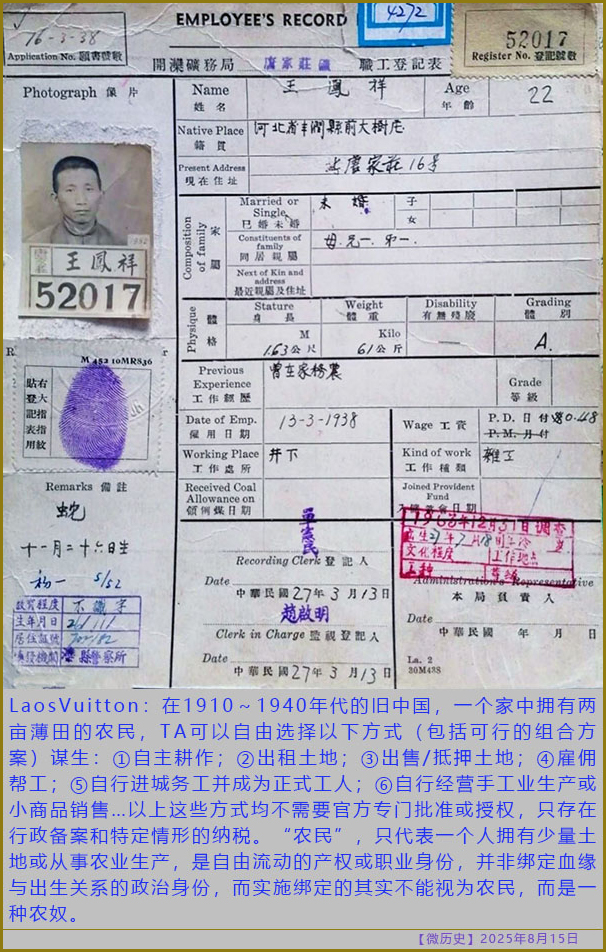 EMPLOYEE'S RECORD
4272
16-3-38
Application No. 願書號數
52017
Register No. 登記號數
開灤礦務局 唐家莊礦 職工登記表
Photograph 像片
Name 姓名
王鳳祥
Age 年齡
22
Native Place 籍貫
河北省丰潤縣前大樹庄
Present Address 現在住址
唐家莊16号
Composition of family 家屬
Married or Single 已婚未婚
未婚
子
女
Constituents of family 同居親屬
母.兄一.弟一.
Next of Kin and address 最近親屬及住址
王鳳祥
52017
Physique 體格
Stature 身長
Weight 體重
Disability 有無殘廢
Grading 體別
M
1.63公尺
Kilo
61公斤
A.
M 452 10MR836
右大指指紋
貼登記表用
Previous Experience 工作經歷
曾在家務農
Grade 等級
Date of Emp. 僱用日期
13-3-1938
Wage 工資
P.D. 日付 $0.48
P.M. 月付
Working Place 工作處所
井下
Kind of work 工作種類
雜工
Received Coal Allowance on 領例煤日期
Joined Provident Fund
Remarks 備註
蛇
十一月二十六日生
5/52
教育程度 不識字
生年月日
居住証號
填發機關 灤縣警察所
單憲民
Recording Clerk 登記人
Date
中華民國27年3月13日
趙啟明
Clerk in Charge 監視登記人
Date
中華民國27年3月13日
1963年12月31日調查
文化程度
工作地点
工种
Administration's Representative
本局負責人
Date
中華民國 年 月 日
La. 2
30M438
LaosVuitton：在1910～1940年代的旧中国，一个家中拥有两
亩薄田的农民，TA可以自由选择以下方式（包括可行的组合方
案）谋生：①自主耕作；②出租土地；③出售/抵押土地；④雇佣
帮工；⑤自行进城务工并成为正式工人；⑥自行经营手工业生产或
小商品销售…以上这些方式均不需要官方专门批准或授权，只存在
行政备案和特定情形的纳税。“农民”，只代表一个人拥有少量土
地或从事农业生产，是自由流动的产权或职业身份，并非绑定血缘
与出生关系的政治身份，而实施绑定的其实不能视为农民，而是一
种农奴。
【微历史】2025年8月15日